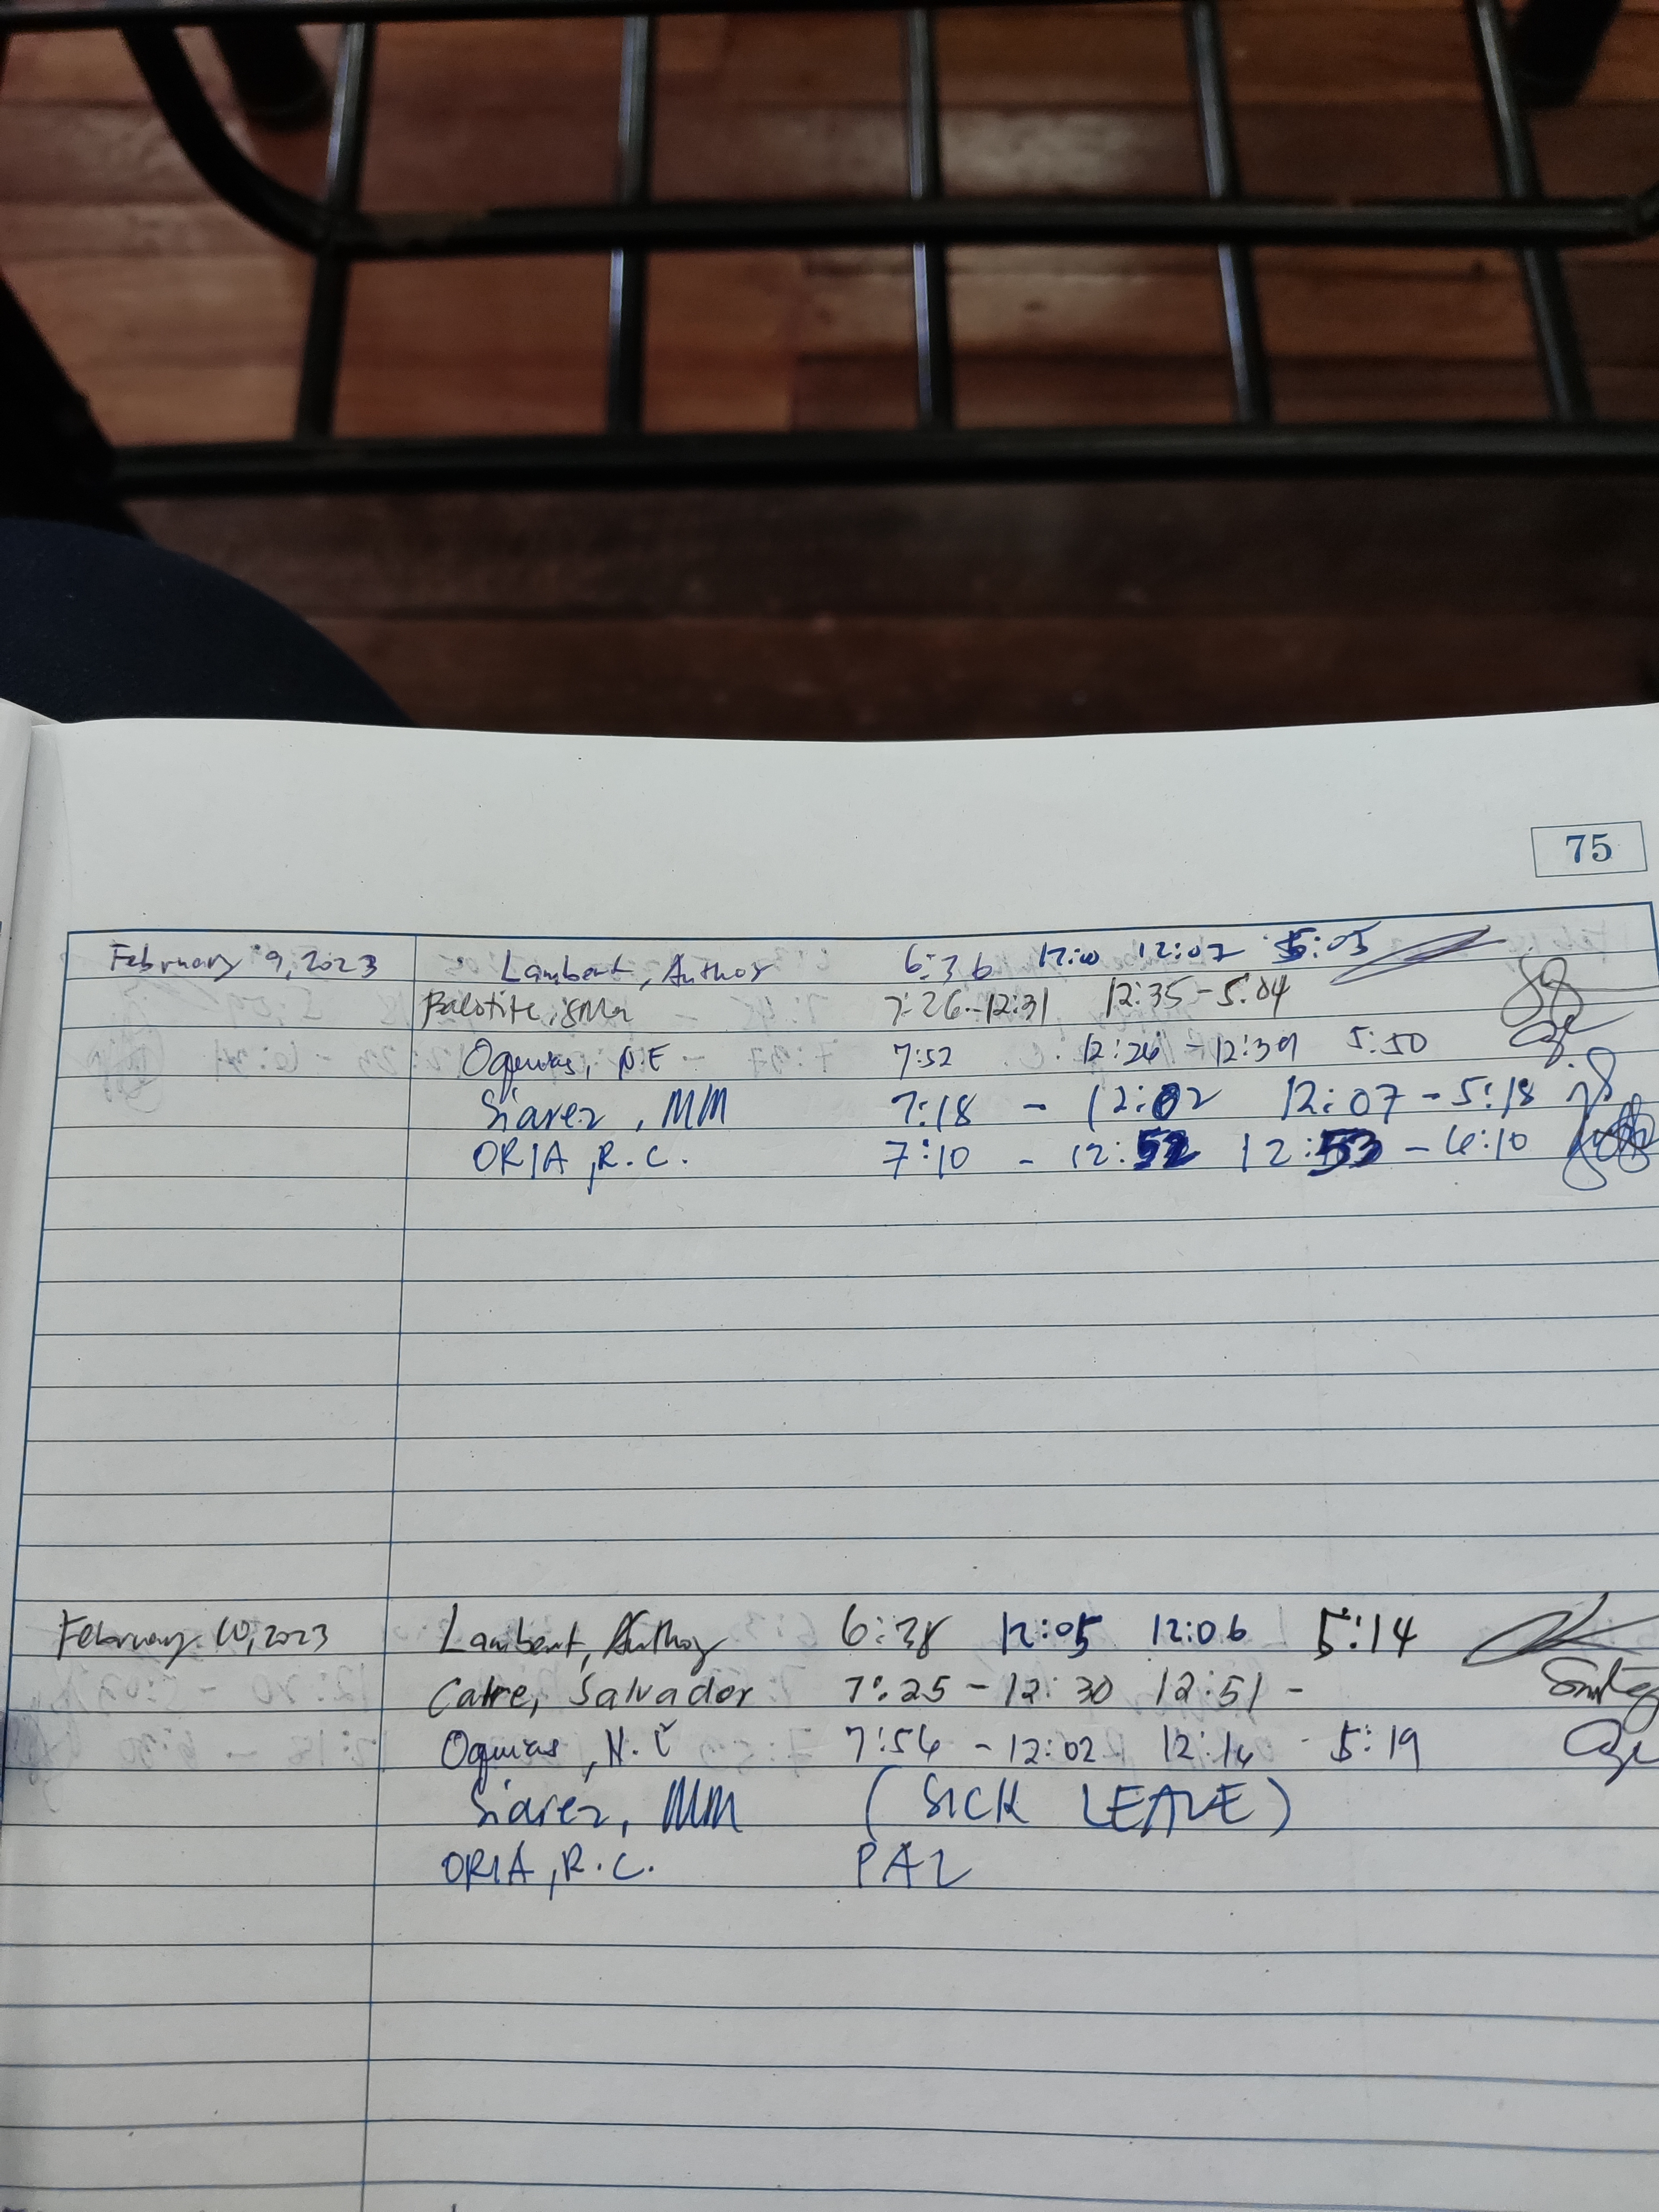 75
February 9, 2023 Lambert, Author 6:36 12:00 12:02 5:05
7:26-12:31 12:35-5:04
Oquias, N.E 7:52 12:26 - 12:39 5:50
Siarez, MM 7:18 - 12:02 12:07 - 5:18
ORIA, R.C. 7:10 - 12:52 12:53 - 6:10
February 10, 2023 Lambert, Author 6:38 12:05 12:06 5:14
Catre, Salvador 7:25 - 12:30 12:51 -
Oquias, N.E 7:56 - 12:02 12:14 - 5:19
Siarez, MM (SICK LEAVE)
ORIA, R.C. PAL